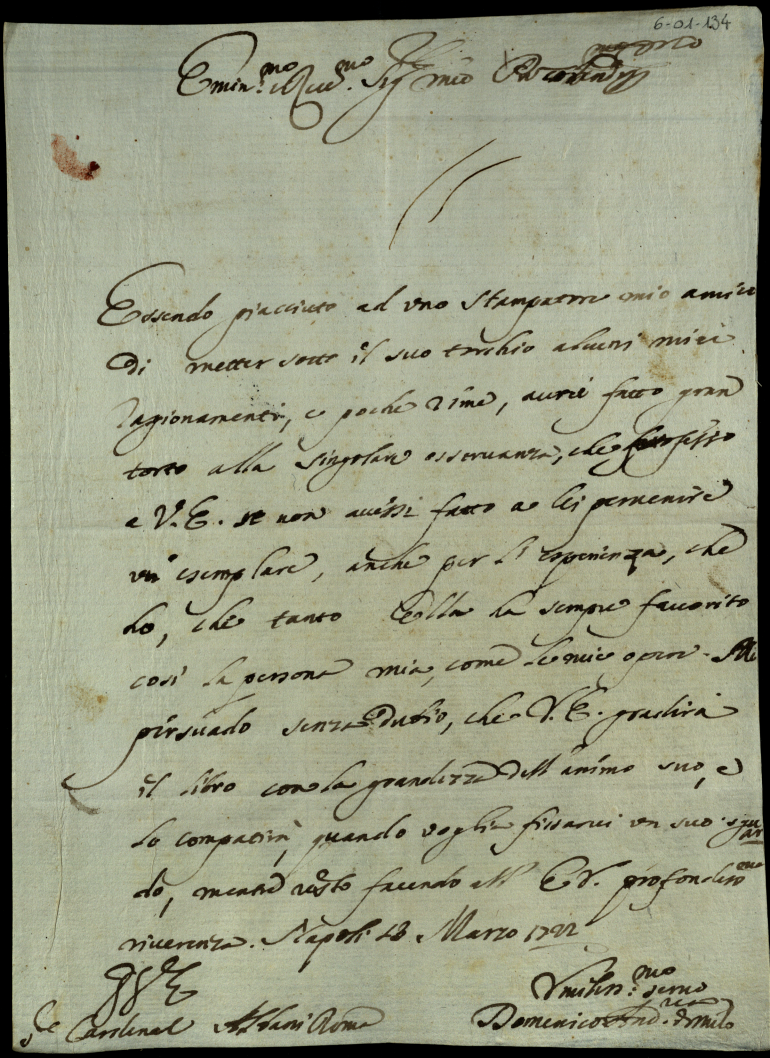 6-01-134
Emin.mo e Rev.mo Sig.re mio
Essendo piacciuto ad uno Stampatore mio amico
di metter sotto il suo torchio alcuni miei
ragionamenti, e poche rime, aurei fatto gran
torto alla singolare osservanza, che professo
a V. E. se non avessi fatto a lei pervenire
un' esemplare, anche per l'esperienza, che
ho, che tanto Ella ha sempre favorito
così la persona mia, come le mie opere. Mi
persuado senza dubio, che V. E. gradirà
il libro con la grandezza dell'animo suo, e
lo compatirà, quando voglia fissarvi un suo sguar
do, mentre resto facendo all' E.V. profondis.ma
riverenza. Napoli 18 Marzo 1722
Umiliss.mo servo
S.e Cardinal Albani Roma
Domenico And.rea de Milo